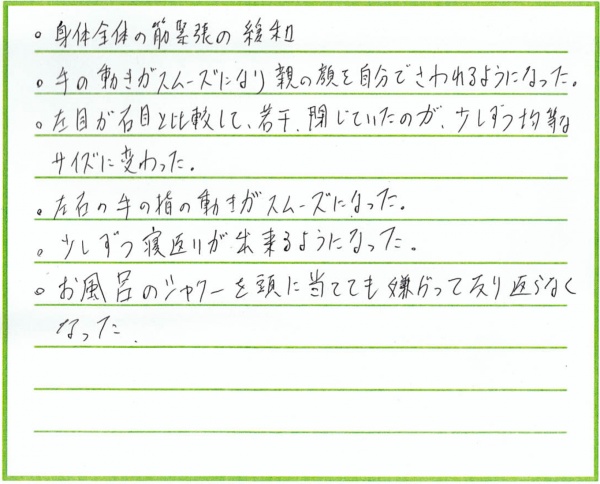 。身体全体の筋緊張の緩和
。手の動きがスムーズになり親の顔を自分でさわれるようになった。
。左目が右目と比較して、若干、閉じていたのが、少しずつ均等な
サイズに変わった。
。左右の手の指の動きがスムーズになった。
。少しずつ寝返りが出来るようになった。
。お風呂のシャワーを頭に当てても嫌がって反り返らなく
なった.